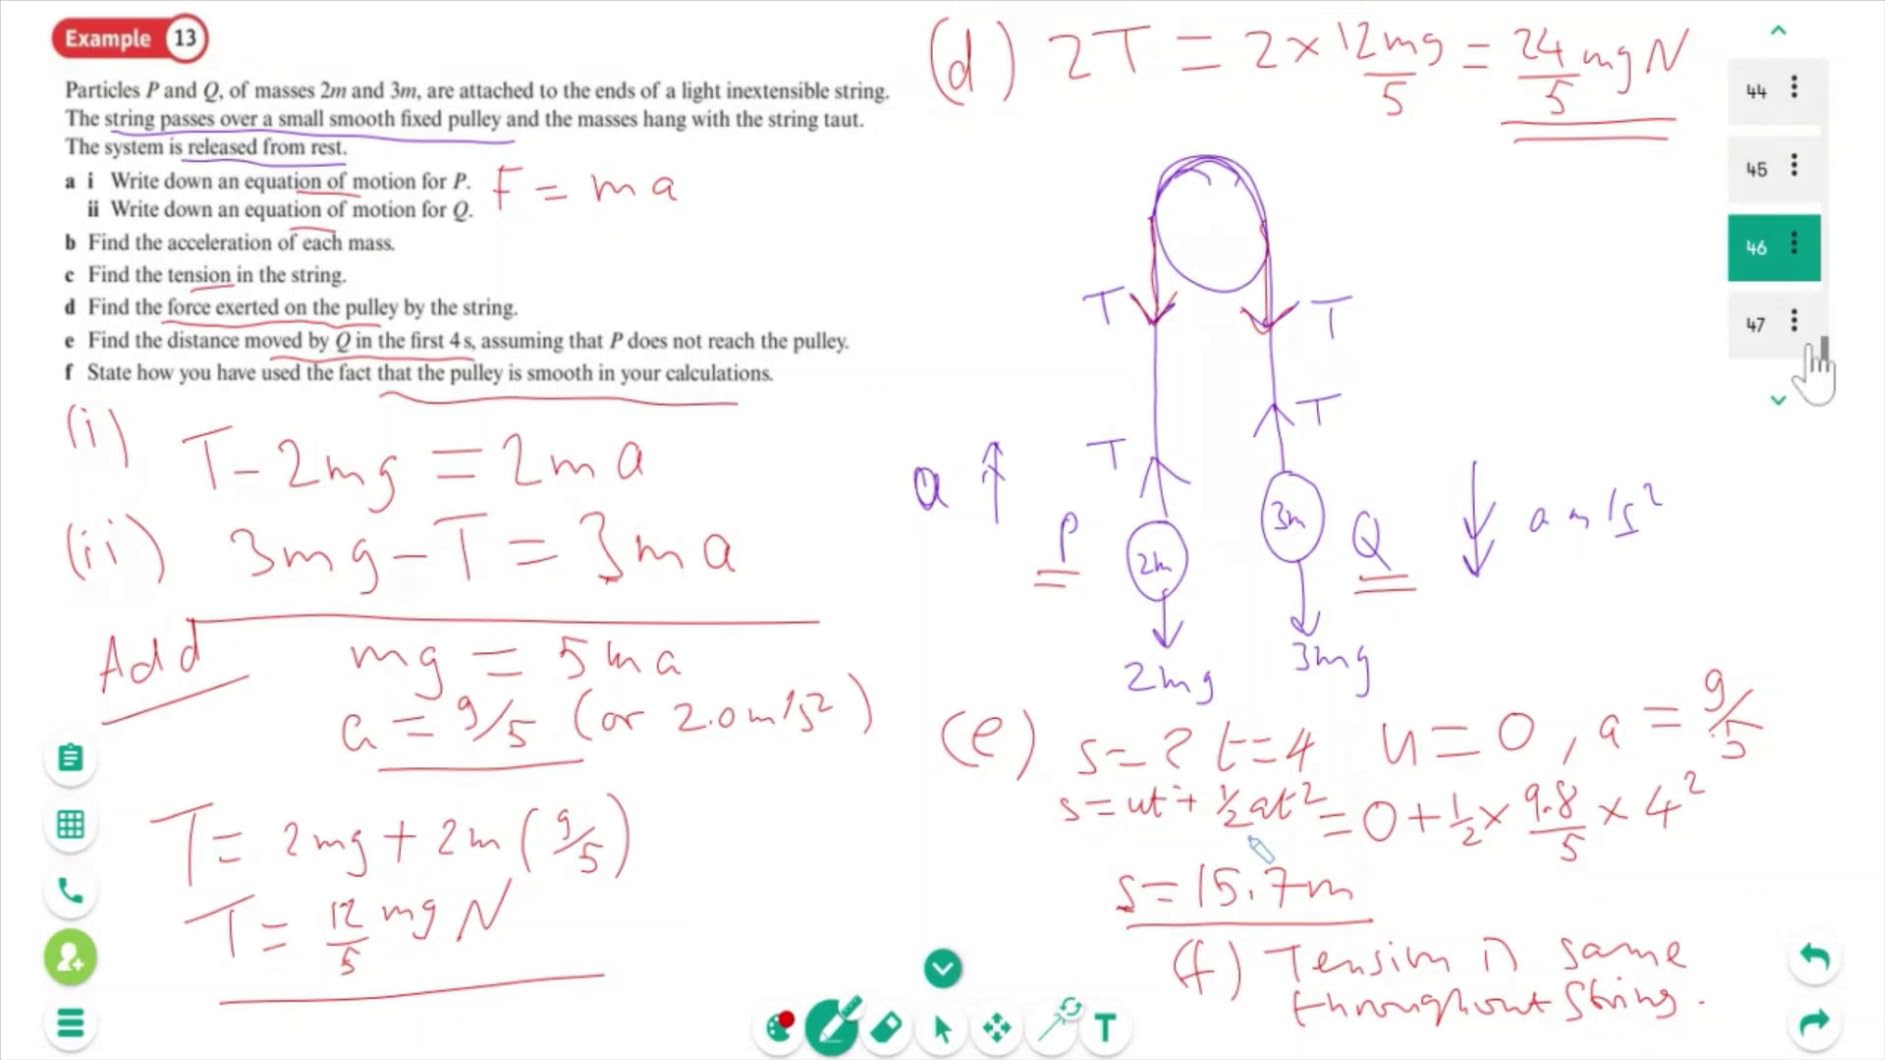 Example 13
Particles P and Q, of masses 2m and 3m, are attached to the ends of a light inextensible string.
The string passes over a small smooth fixed pulley and the masses hang with the string taut.
The system is released from rest.
a i Write down an equation of motion for P.
ii Write down an equation of motion for Q.
F = ma
b Find the acceleration of each mass.
c Find the tension in the string.
d Find the force exerted on the pulley by the string.
e Find the distance moved by Q in the first 4 s, assuming that P does not reach the pulley.
f State how you have used the fact that the pulley is smooth in your calculations.
(i) T - 2mg = 2ma
(ii) 3mg - T = 3ma
Add mg = 5ma
a = g/5 (or 2.0 m/s²)
T = 2mg + 2m (g/5)
T = 12/5 mg N
(d) 2T = 2 × 12mg/5 = 24/5 mg N
T T
T T
a P 2m 3m Q a m/s²
2mg 3mg
(e) s = ? t = 4 u = 0, a = g/5
s = ut + ½at² = 0 + ½ × 9.8/5 × 4²
s = 15.7m
(f) Tension is same
throughout string.
44
45
46
47
T